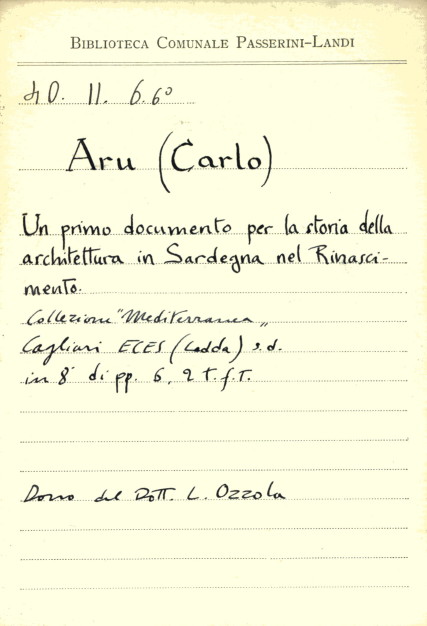 BIBLIOTECA COMUNALE PASSERINI-LANDI
4 O. II. 6.6°
Aru (Carlo)
Un primo documento per la storia della
architettura in Sardegna nel Rinasci-
mento.
Collezione "Mediterranea„
Cagliari ECES (Ledda) s.d.
in 8° di pp. 6, 2 t.f.t.
Dono del Dott. L. Ozzola